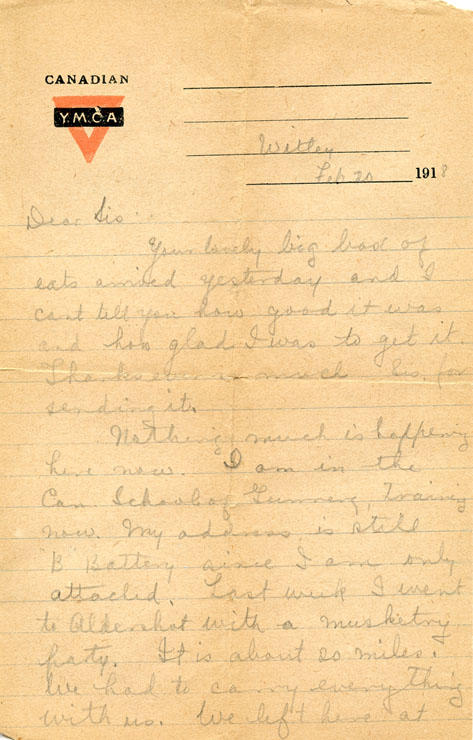 CANADIAN
Y.M.C.A
Witley
Feb 20 1918
Dear Sis
Your lovely big box of
eats arrived yesterday and I
cant tell you how good it was
and how glad I was to get it.
Thanks ever so much Sis for
sending it.
Nothing much is happening
here now. I am in the
Can School of Gunnery, Training
now. My address is still
B Battery since I am only
attached. Last week I went
to Aldershot with a musketry
party. It is about 20 miles.
We had to carry everything
with us. We left here at